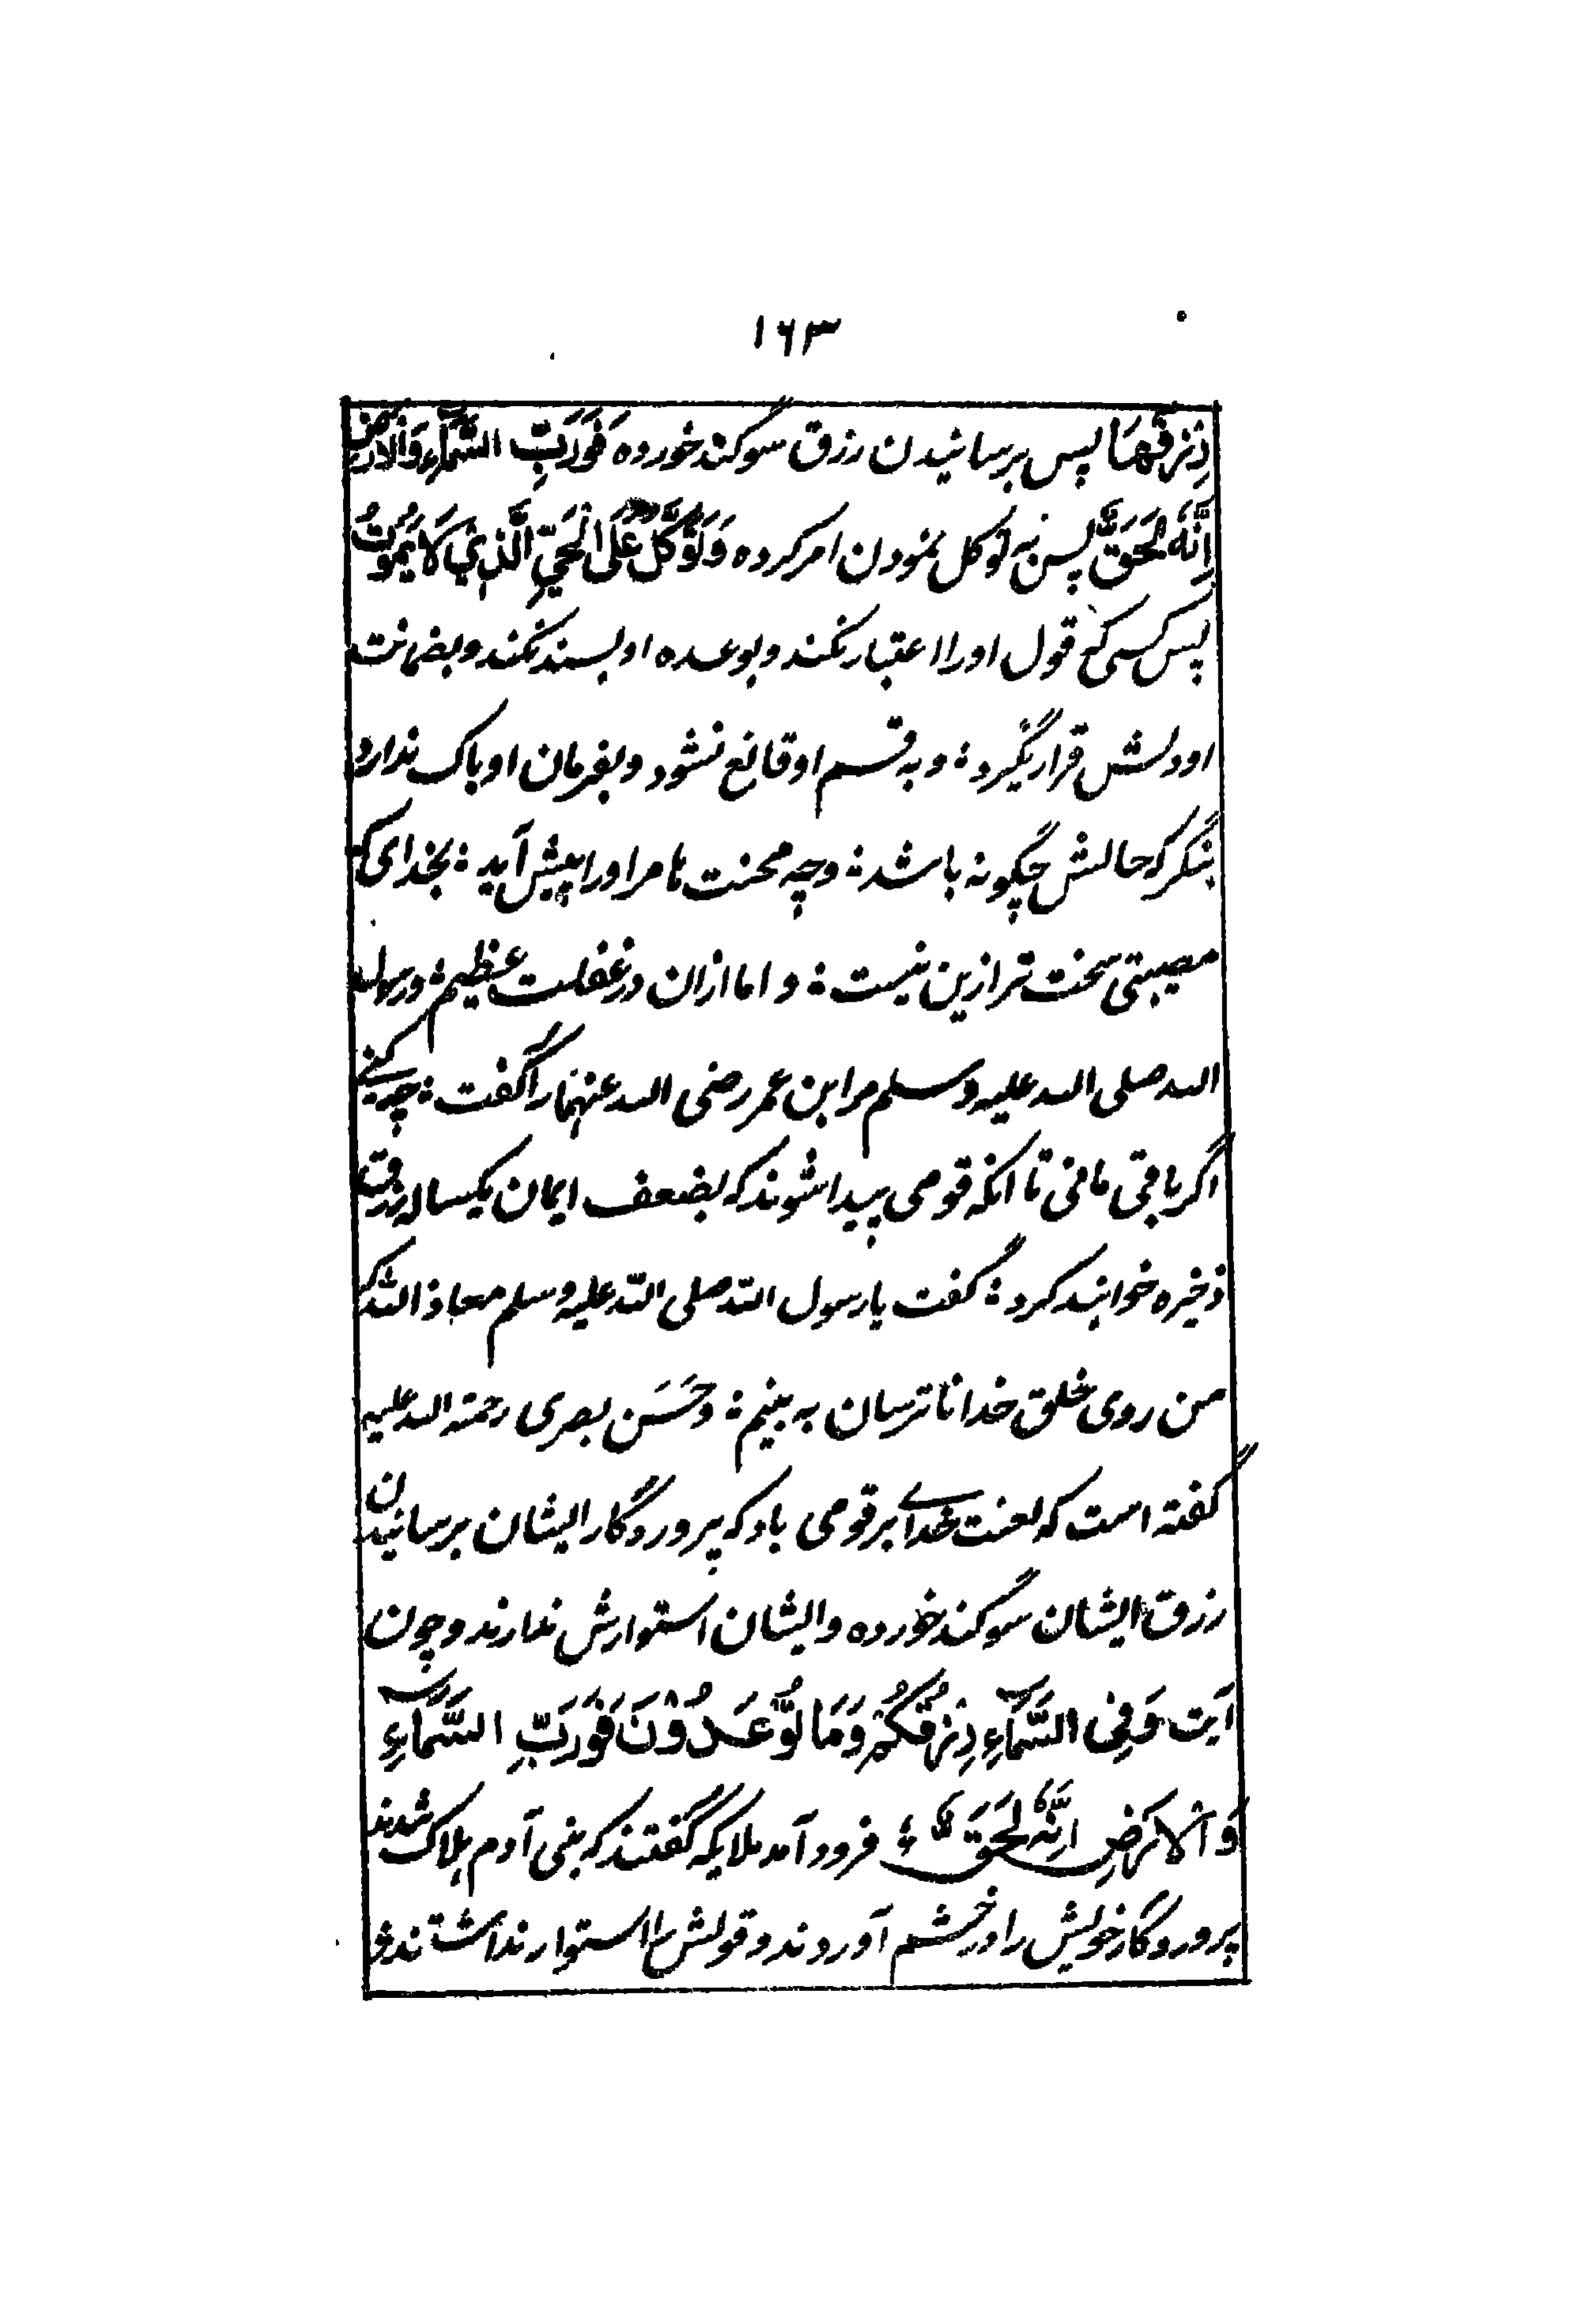 ۱۶۳
رِزْقُهَا پس برسانیدن رزق سوگند خورده فَوَرَبِّ السَّمَآءِ وَالْاَرْضِ
اِنَّهٗ لَحَقٌّ پس به توکل نمودن امر کرده وَتَوَكَّلْ عَلَى الْحَيِّ الَّذِيْ لَا يَمُوْتُ
پس کسی که قول او را اعتبار نکند و بوعده او بسند نکند و بضمانت
او دلش قرار نگیرد؛ و به قسم او قانع نشود و بفرمان او باک ندارد
بنگر که حالش چگونه باشد؛ و چه محنت ها مر او را پیش آید؛ بخدای که
مصیبتی سخت تر ازین نیست؛ و اما ازان در غفلت عظیم؛ و رسول
الله صلی الله علیه و سلم مر ابن عمر رضی الله عنهما را گفت؛ چه کنی
اگر باقی مانی تا آنکه قومی پیدا شوند که بضعف ایمان یکساله رزق
ذخیره خواهند کرد؛ گفت یا رسول الله صلی الله علیه وسلم معاذ الله که
من روی خلق خدا ناترسان به بینم؛ و حَسَن بصری رحمة الله علیه
گفته است که لعنت خدای بر قومی باد که پروردگار ایشان برسانیدن
رزق ایشان سوگند خورده و ایشان استوارش ندارند و چون
آیَت وَفِي السَّمَآءِ رِزْقُكُمْ وَمَا تُوْعَدُوْنَ فَوَرَبِّ السَّمَآءِ
وَالْاَرْضِ اِنَّهٗ لَحَقٌّ؛ فرود آمد ملایکه گفتند که بنی آدم هلاک شدند
پروردگار خویش را در خشم آوردند و قولش را استوار نداشتند و